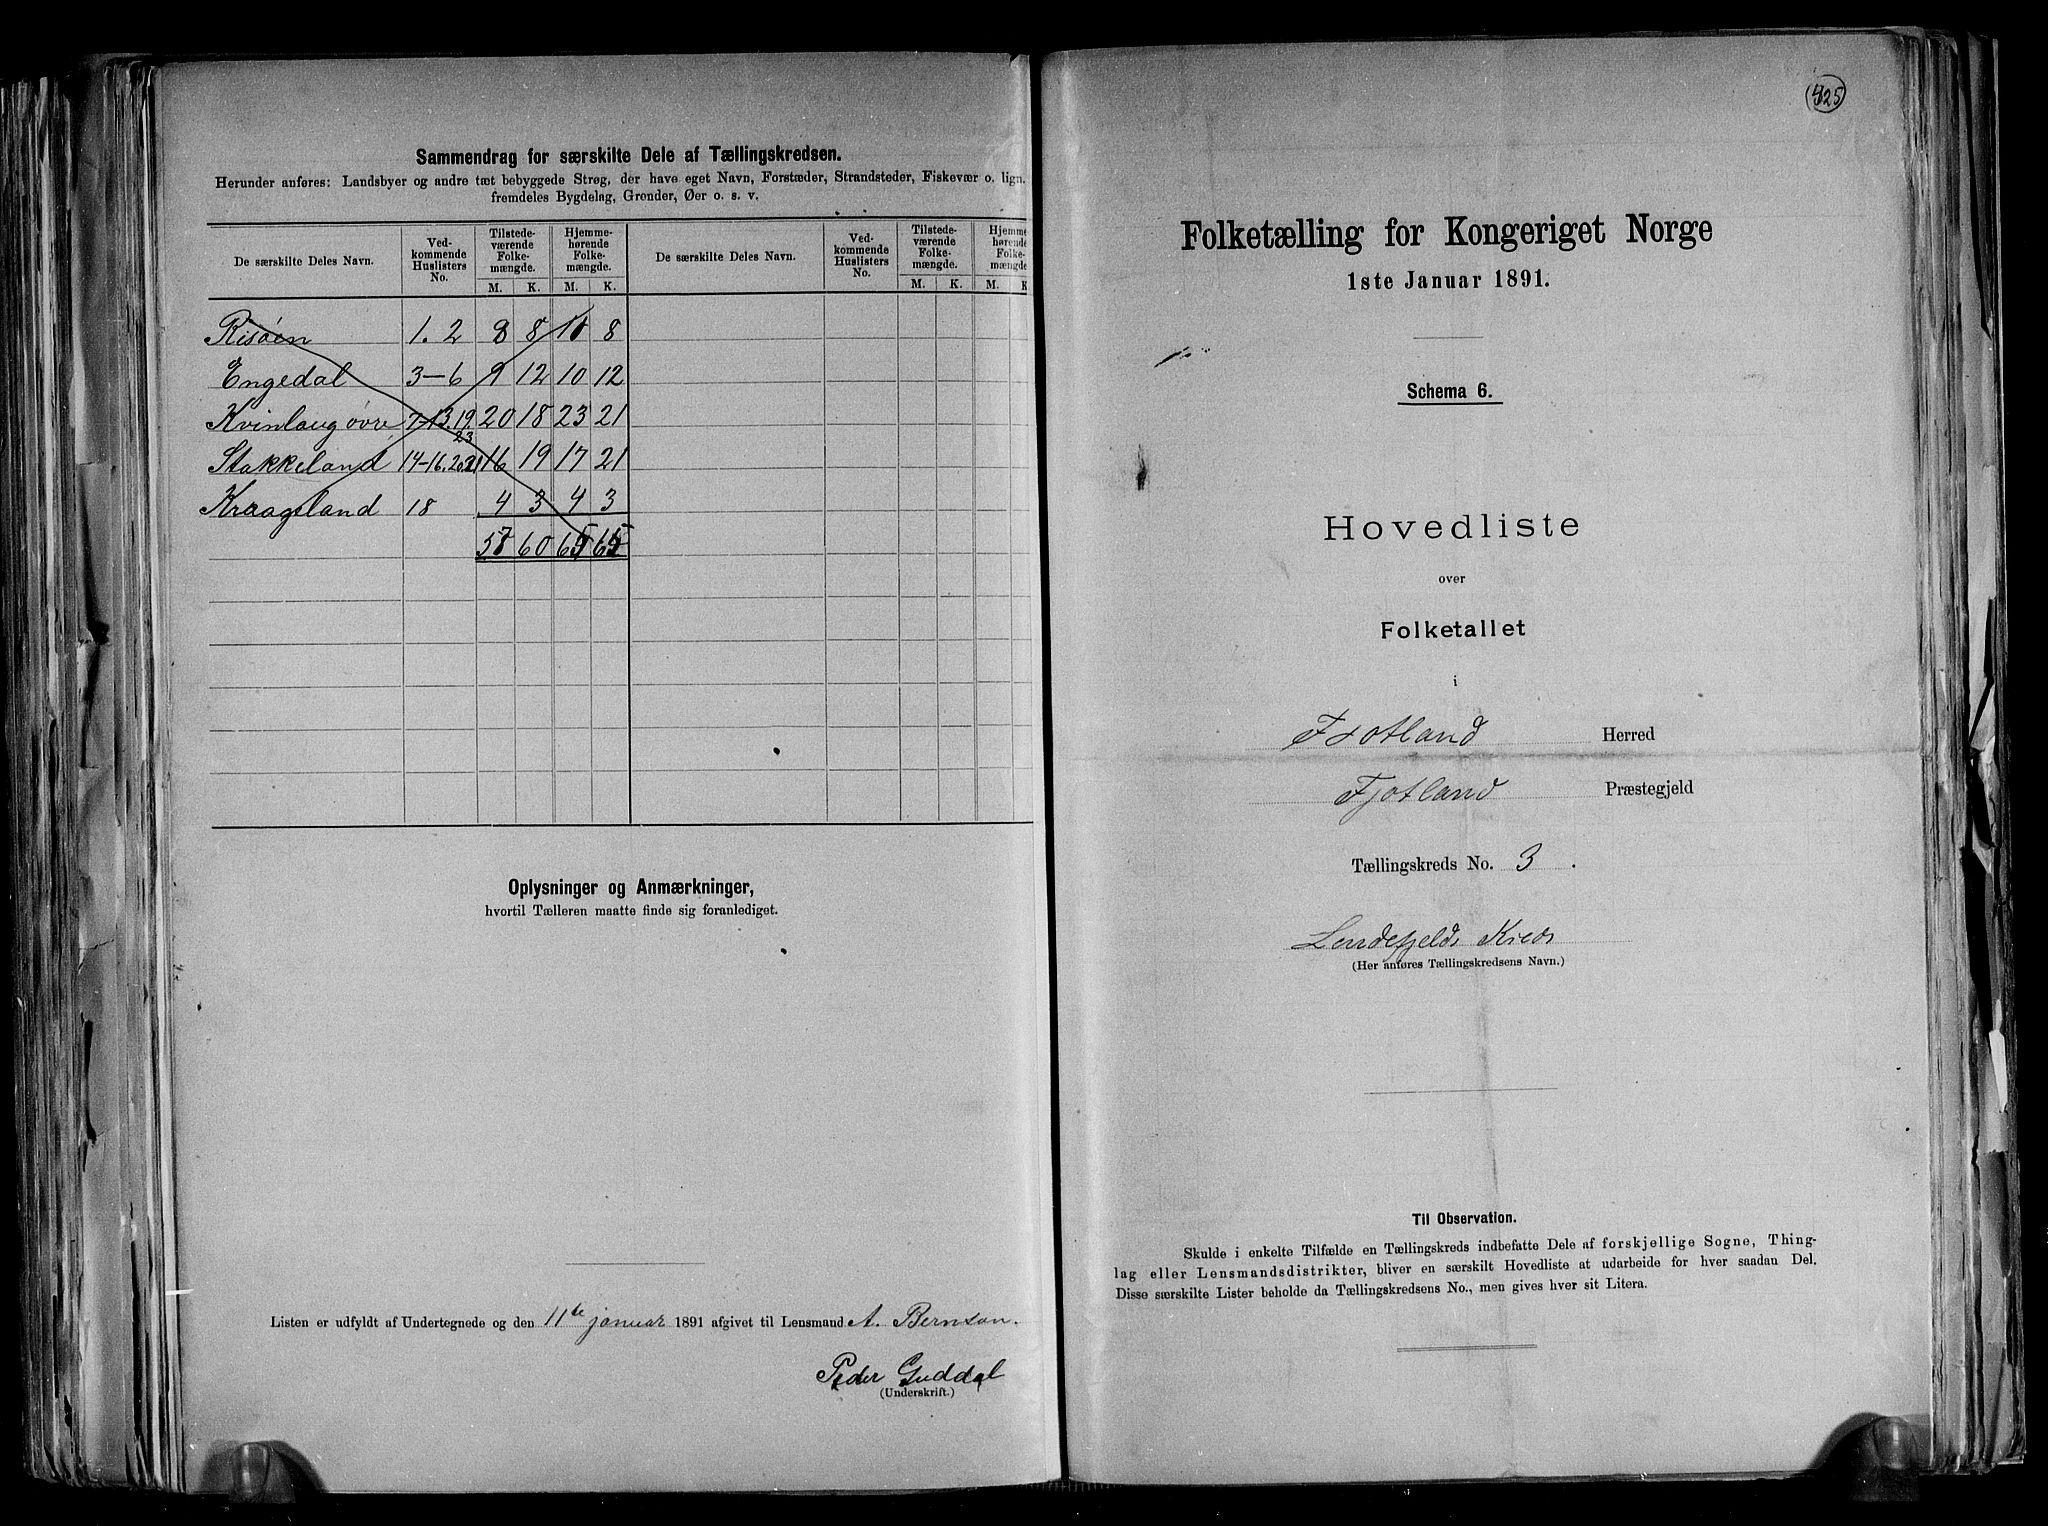 Sammendrag for særskilte Dele af Tællingskredsen.
Herunder anføres: Landsbyer og andre tæt bebyggede Strøg, der have eget Navn, Forstæder, Strandsteder, Fiskevær o. lign.
fremdeles Bygdelag, Grender, Øer o. s. v.
De særskilte Deles Navn. Ved-kommende Huslisters No. Tilstede-værende Folke-mængde. Hjemme-hørende Folke-mængde. De særskilte Deles Navn. Ved-kommende Huslisters No. Tilstede-værende Folke-mængde. Hjemme-hørende Folke-mængde.
M. K. M. K. M. K. M. K
Risöen 1. 2 8 8 11 8
Engedal 3-6 9 12 10 12
Kvinlaug øvre 7-13. 19. 23 20 18 23 21
Stakkeland 14-16. 20. 21 16 19 17 21
Kraageland 18 4 3 4 3
57 60 65 65
Oplysninger og Anmærkninger,
hvortil Tælleren maatte finde sig foranlediget.
Listen er udfyldt af Undertegnede og den 11te januar 1891 afgivet til Lensmand A. Berntson.
Peder Guddal
(Underskrift.)
425
Folketælling for Kongeriget Norge
1ste Januar 1891.
Schema 6.
Hovedliste
over
Folketallet
i
Fjotland Herred
Fjotland Præstegjeld
Tællingskreds No. 3.
Lendefjelds Kreds
(Her anføres Tællingskredsens Navn.)
Til Observation.
Skulde i enkelte Tilfælde en Tællingskreds indbefatte Dele af forskjellige Sogne, Thing-
lag eller Lensmandsdistrikter, bliver en særskilt Hovedliste at udarbeide for hver saadan Del.
Disse særskilte Lister beholde da Tællingskredsens No., men gives hver sit Litera.